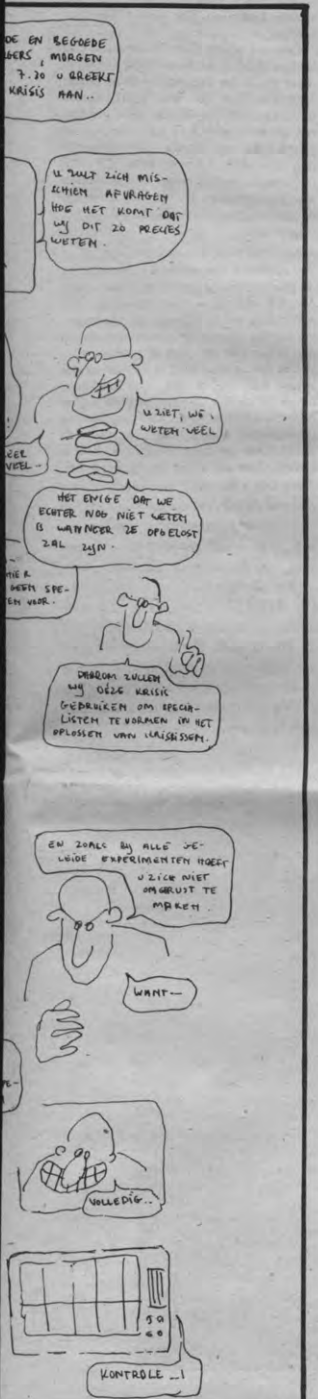 DE EN BEGOEDE
GERS, MORGEN
7.30 U BREEKT
KRISIS AAN..
U ZULT ZICH MIS-
SCHIEN AFVRAGEN
HOE HET KOMT DAT
WIJ DIT ZO PRECIES
WETEN.
U ZIET, WE
WETEN VEEL
EER
VEEL..
HET ENIGE DAT WE
ECHTER NOG NIET WETEN
IS WANNEER ZE OPGELOST
ZAL ZIJN.
HIER
GEEN SPE-
EN VOOR.
DAAROM ZULLEN
WIJ DEZE KRISIS
GEBRUIKEN OM SPECIA-
LISTEN TE VORMEN IN HET
OPLOSSEN VAN KRISISSEN.
EN ZOALS BIJ ALLE GE-
LEIDE EXPERIMENTEN HOEFT
U ZICH NIET
ONGERUST TE
MAKEN.
WANT...
VOLLEDIG..
KONTROLE..!